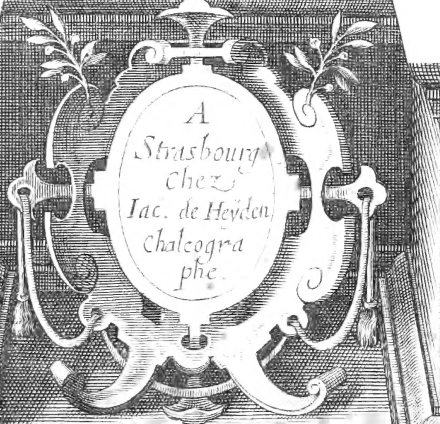 A
Strasbourg
Chez
Iac. de Heÿden
Chalcogra
phe.